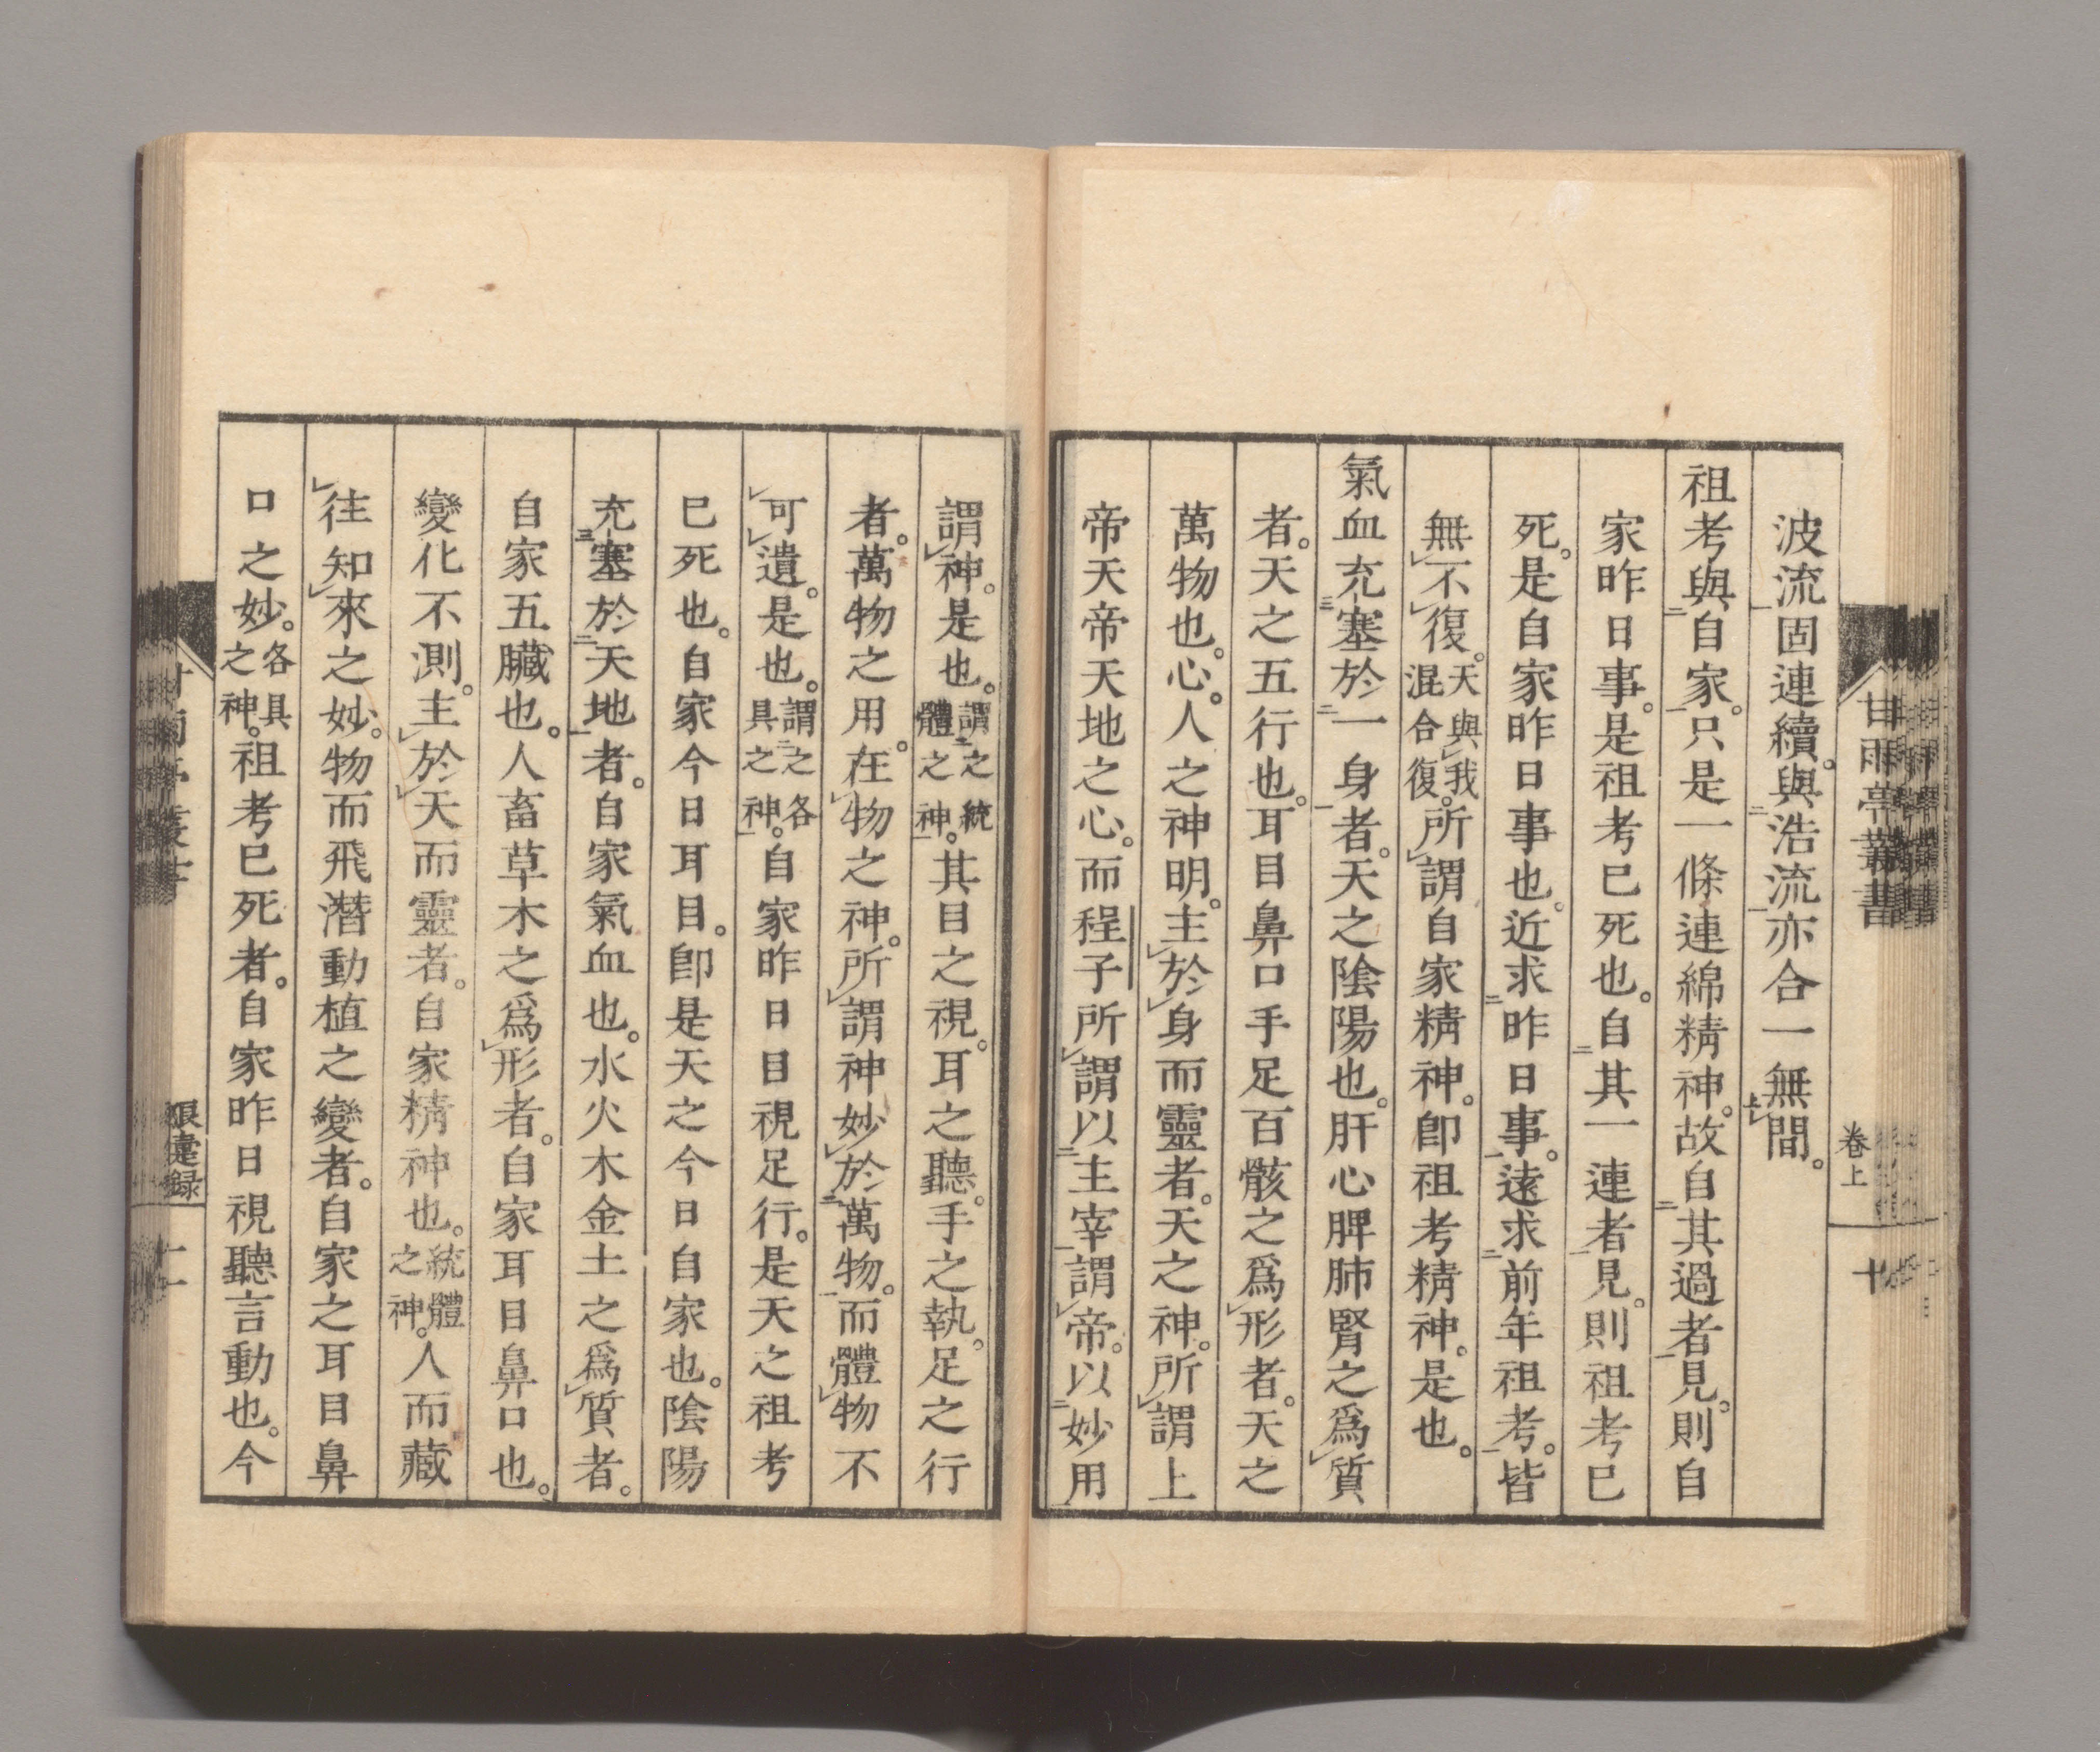 甘雨亭叢書
卷上
十
波流固連續。與浩流亦合一無間。
祖考與自家。只是一條連綿精神。故自其過者見。則自
家昨日事。是祖考已死也。自其一連者見。則祖考已
死。是自家昨日事也。近求昨日事。遠求前年祖考。皆
無不復。天與我混合復。所謂自家精神。卽祖考精神。是也。
氣血充塞於一身者。天之陰陽也。肝心脾肺腎之爲質
者。天之五行也。耳目鼻口手足百骸之爲形者。天之
萬物也。心。人之神明。主於身而靈者。天之神。所謂上
帝天帝天地之心。而程子所謂以主宰謂帝。以妙用
謂神。是也。謂之統體之神。其目之視。耳之聽。手之執。足之行
者。萬物之用。在物之神。所謂神妙於萬物。而體物不
可遺。是也。謂之各具之神。自家昨日目視足行。是天之祖考
已死也。自家今日耳目。卽是天之今日自家也。陰陽
充塞於天地者。自家氣血也。水火木金土之爲質者。
自家五臟也。人畜草木之爲形者。自家耳目鼻口也。
變化不測。主於天而靈者。自家精神也。統體之神。人而藏
往知來之妙。物而飛潛動植之變者。自家之耳目鼻
口之妙。各具之神。祖考已死者。自家昨日視聽言動也。今